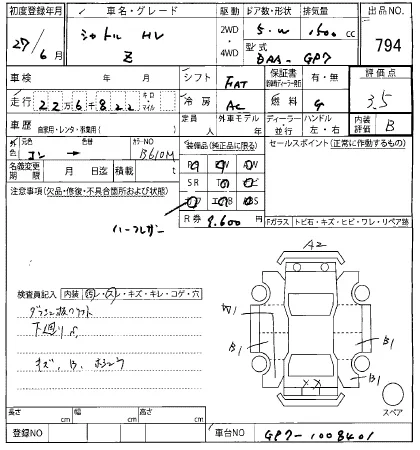 初度登録年月 車名・グレード 駆動 ドア数・形状 排気量 出品NO.
27年 6月 シャトル HV Z 2WD ・ 4WD 5・W 1500cc 794
型式 DAA-GP7
車検 年 月 シフト FAT 保証書 有・無 評価点
走行 22万6千822 キロ・マイル 冷房 AC 燃料 G 3.5
車歴 自家用・レンタ・事業用( ) 定員 人 外車モデル 年 ディーラー・並行 ハンドル 左・右 内装評価 B
外色 元色 コン 色替 カラーNO B610M
装備品(純正品に限る) セールスポイント(正常に作動するもの)
名義変更期限 月 日 積載 t
PS PW AW
SR TV ナビ
エアB ABS
注意事項(欠品・修復・不具合箇所および状態)
R券 9,600円
Fガラス トビ石・キズ・ヒビ・ワレ・リペア跡
ハーフレザー
A2
検査員記入 内装 汚レ・スレ・キズ・キレ・コゲ・穴
下回りサ
キズ、B、
W1
B1
B1
B1
XX
スペア
長さ cm 幅 cm 高さ cm
登録NO 車台NO GP7-1008401